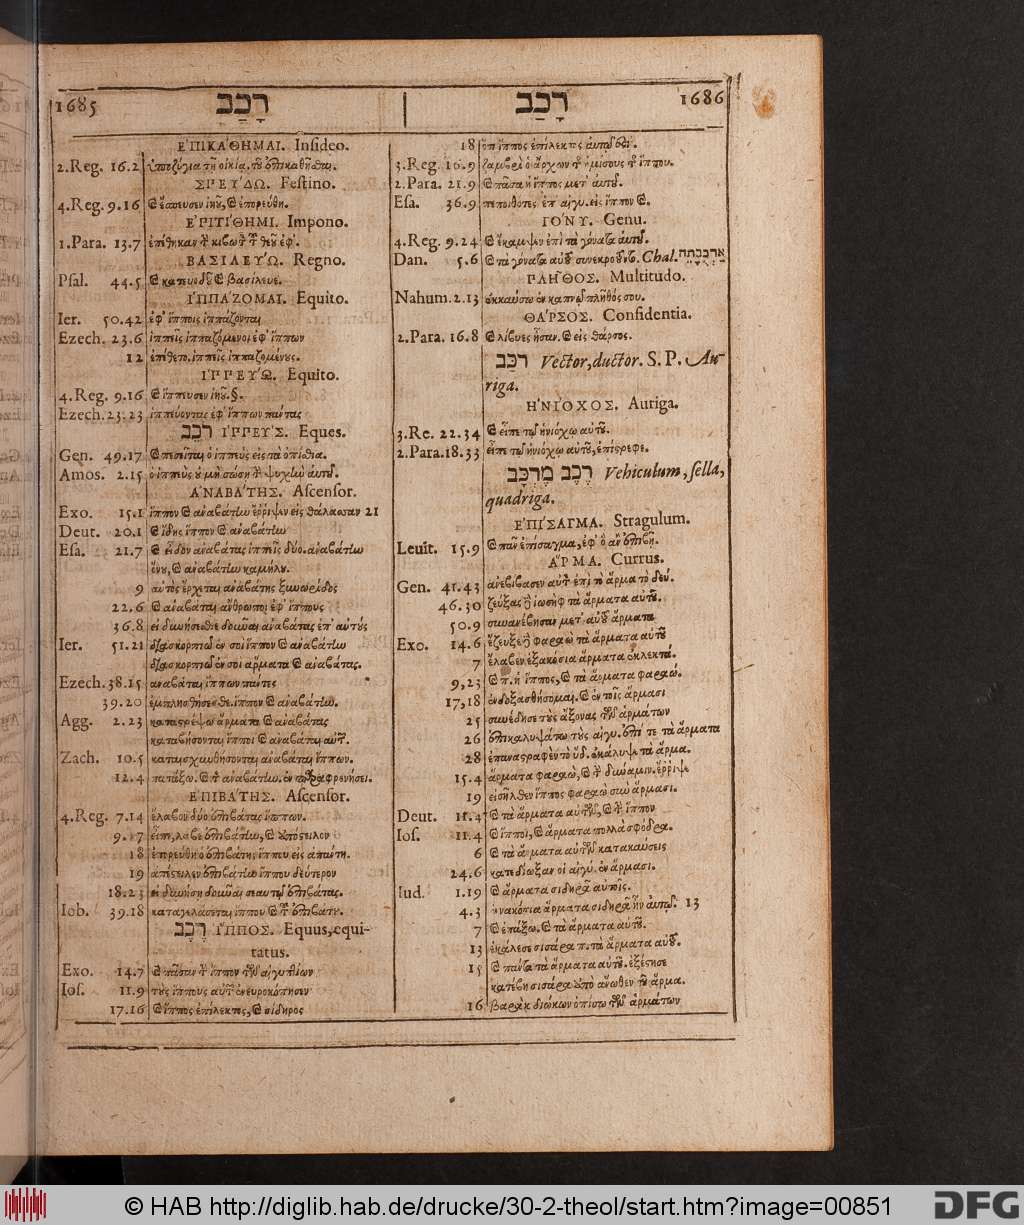 1685 רָכַב
ἘΠΙΚΆΘΗΜΑΙ. Insideo.
2.Reg. 16.2 ὑποζύγια τῇ οἰκίᾳ τοῦ ἐπικαθῆσθαι.
ΣΠΕΎΔΩ. Festino.
4.Reg. 9.16 καὶ ἔσπευσεν ἰηοῦ, καὶ ἐπορεύθη.
ἘΠΙΤΊΘΗΜΙ. Impono.
1.Para. 13.7 ἐπέθηκαν τὴν κιβωτὸν τοῦ θεοῦ ἐφ'.
ΒΑΣΙΛΕΎΩ. Regno.
Psal. 44.5 καὶ κατευοδοῦ καὶ βασίλευε.
ἹΠΠΆΖΟΜΑΙ. Equito.
Ier. 50.42 ἐφ' ἵπποις ἱππάζονται
Ezech. 23.6 ἱππεῖς ἱππαζόμενοι ἐφ' ἵππων
12 ἐπέθετο. ἱππεῖς ἱππαζομένους.
ἹΠΠΕΎΩ. Equito.
4.Reg. 9.16 καὶ ἵππευσεν ἰηοῦ. §.
Ezech. 23.23 ἱππεύοντας ἐφ' ἵππων πάντας
רֹכֵב ἹΠΠΕΎΣ. Eques.
Gen. 49.17 καὶ πεσεῖται ὁ ἱππεὺς εἰς τὰ ὀπίσθια.
Amos. 2.15 ὁ ἱππεὺς οὐ μὴ σώσῃ τὴν ψυχὴν αὐτοῦ.
ἈΝΑΒΆΤΗΣ. Ascensor.
Exo. 15.1 ἵππον καὶ ἀναβάτην ἔρριψεν εἰς θάλασσαν 21
Deut. 20.1 καὶ ἴδῃς ἵππον καὶ ἀναβάτην
Esa. 21.7 καὶ εἶδον ἀναβάτας ἱππεῖς δύο. ἀναβάτην
ὄνου, καὶ ἀναβάτην καμήλου.
9 αὐτὸς ἔρχεται ἀναβάτης ξυνωρίδος
22.6 καὶ ἀναβάται ἄνθρωποι ἐφ' ἵππους
36.8 εἰ δυνήσεσθε δοῦναι ἀναβάτας ἐπ' αὐτούς
Ier. 51.21 διασκορπιῶ ἐν σοὶ ἵππον καὶ ἀναβάτην
διασκορπιῶ ἐν σοὶ ἅρματα καὶ ἀναβάτας.
Ezech. 38.15 ἀναβάται ἵππων πάντες
39.20 ἐμπλησθήσεσθε. ἵππον καὶ ἀναβάτην.
Agg. 2.23 καταστρέψω ἅρματα καὶ ἀναβάτας
καταβήσονται ἵπποι καὶ ἀναβάται αὐτῶν.
Zach. 10.5 καταισχυνθήσονται ἀναβάται ἵππων.
12.4 πατάξω. καὶ τὸν ἀναβάτην. ἐν παραφρονήσει.
ἘΠΙΒΆΤΗΣ. Ascensor.
4.Reg. 7.14 ἔλαβον δύο ἐπιβάτας ἵππων.
9.17 εἶπε, λάβε ἐπιβάτην, καὶ ἀπόστειλον
18 ἐπορεύθη ὁ ἐπιβάτης ἵππου εἰς ἀπαντήν.
19 ἀπέστειλεν ἐπιβάτην ἵππου δεύτερον
18.23 εἰ δυνήσῃ δοῦναι σεαυτῷ ἐπιβάτας.
Iob. 39.18 καταγελάσεται ἵππου καὶ τοῦ ἐπιβάτου.
רֶכֶב ἽΠΠΟΣ. Equus, equi-
tatus.
Exo. 14.7 καὶ πᾶσαν τὴν ἵππον τῶν αἰγυπτίων
Ios. 11.9 τοὺς ἵππους αὐτῶν ἐνευροκόπησεν
17.16 καὶ ἵππος ἐπίλεκτος, καὶ σίδηρος
רָכַב 1686
18 ὅτι ἵππος ἐπίλεκτος αὐτῷ ἐστί.
3.Reg. 16.9 ζαμβρὶ ὁ ἄρχων τῆς ἡμίσους τῆς ἵππου.
2.Para. 21.9 καὶ πᾶσα ἡ ἵππος μετ' αὐτοῦ.
Esa. 36.9 πεποιθότες ἐπ' αἰγυ. εἰς ἵππον καὶ.
ΓΌΝΥ. Genu.
4.Reg. 9.24 καὶ ἔκαμψεν ἐπὶ τὰ γόνατα αὐτοῦ.
Dan. 5.6 καὶ τὰ γόνατα αὐτοῦ συνεκροῦντο. Chal. אַרְכֻבָּתֵהּ
ΠΛΗ͂ΘΟΣ. Multitudo.
Nahum. 2.13 ἐκκαύσω ἐν καπνῷ πλῆθός σου.
ΘΆΡΣΟΣ. Confidentia.
2.Para. 16.8 καὶ λίβυες ἦσαν. καὶ εἰς θάρσος.
רַכָּב Vector, ductor. S. P. Au-
riga.
ἩΝΊΟΧΟΣ. Auriga.
3.Re. 22.34 καὶ εἶπε τῷ ἡνιόχῳ αὐτοῦ.
2.Para. 18.33 εἶπε τῷ ἡνιόχῳ αὐτοῦ, ἐπίστρεφε.
רֶכֶב מֶרְכָּב Vehiculum, sella,
quadriga.
ἘΠΊΣΑΓΜΑ. Stragulum.
Levit. 15.9 καὶ πᾶν ἐπίσαγμα, ἐφ' ὃ ἂν ἐπιβῇ.
ἍΡΜΑ. Currus.
Gen. 41.43 ἀνεβίβασεν αὐτὸν ἐπὶ τὸ ἅρμα τὸ δεύ.
46.30 ζεύξας δὲ ἰωσὴφ τὰ ἅρματα αὐτοῦ.
50.9 συνανέβησαν μετ' αὐτοῦ ἅρματα
Exo. 14.6 ἔζευξε δὲ φαραὼ τὰ ἅρματα αὐτοῦ
7 ἔλαβεν ἑξακόσια ἅρματα ἐκλεκτά.
9,23 καὶ π. ἡ ἵππος, καὶ τὰ ἅρματα φαραώ.
17,18 ἐνδοξασθήσομαι. καὶ ἐν τοῖς ἅρμασι
25 συνέδησε τοὺς ἄξονας τῶν ἁρμάτων
26 ἐπικαλυψάτω τοὺς αἰγυ. ἐπί τε τὰ ἅρματα
28 ἐπαναστραφὲν τὸ ὕδ. ἐκάλυψε τὰ ἅρμα.
15.4 ἅρματα φαραώ, καὶ τὴν δύναμιν. ἔρριψε
19 εἰσῆλθεν ἵππος φαραὼ σὺν ἅρμασι.
Deut. 11.4 καὶ τὰ ἅρματα αὐτῶν, καὶ τὴν ἵππον
Ios. 11.4 καὶ ἵπποι, καὶ ἅρματα πολλὰ σφόδρα.
6 καὶ τὰ ἅρματα αὐτῶν κατακαύσεις
24.6 κατεδίωξαν οἱ αἰγυ. ἐν ἅρμασι.
Iud. 1.19 καὶ ἅρματα σιδηρᾶ αὐτοῖς.
4.3 ἐννακόσια ἅρματα σιδηρᾶ ἦν αὐτῷ. 13
7 καὶ ἐπάξω. καὶ τὰ ἅρματα αὐτοῦ.
13 ἐκάλεσε σισάρα π. τὰ ἅρματα αὐτοῦ.
15 καὶ πάντα τὰ ἅρματα αὐτοῦ. ἐξέστησε
κατέβη σισάρα ἀπὸ ἄνωθεν τοῦ ἅρμα.
16 βαρὰκ διώκων ὀπίσω τῶν ἁρμάτων
© HAB http://diglib.hab.de/drucke/30-2-theol/start.htm?image=00851
DFG